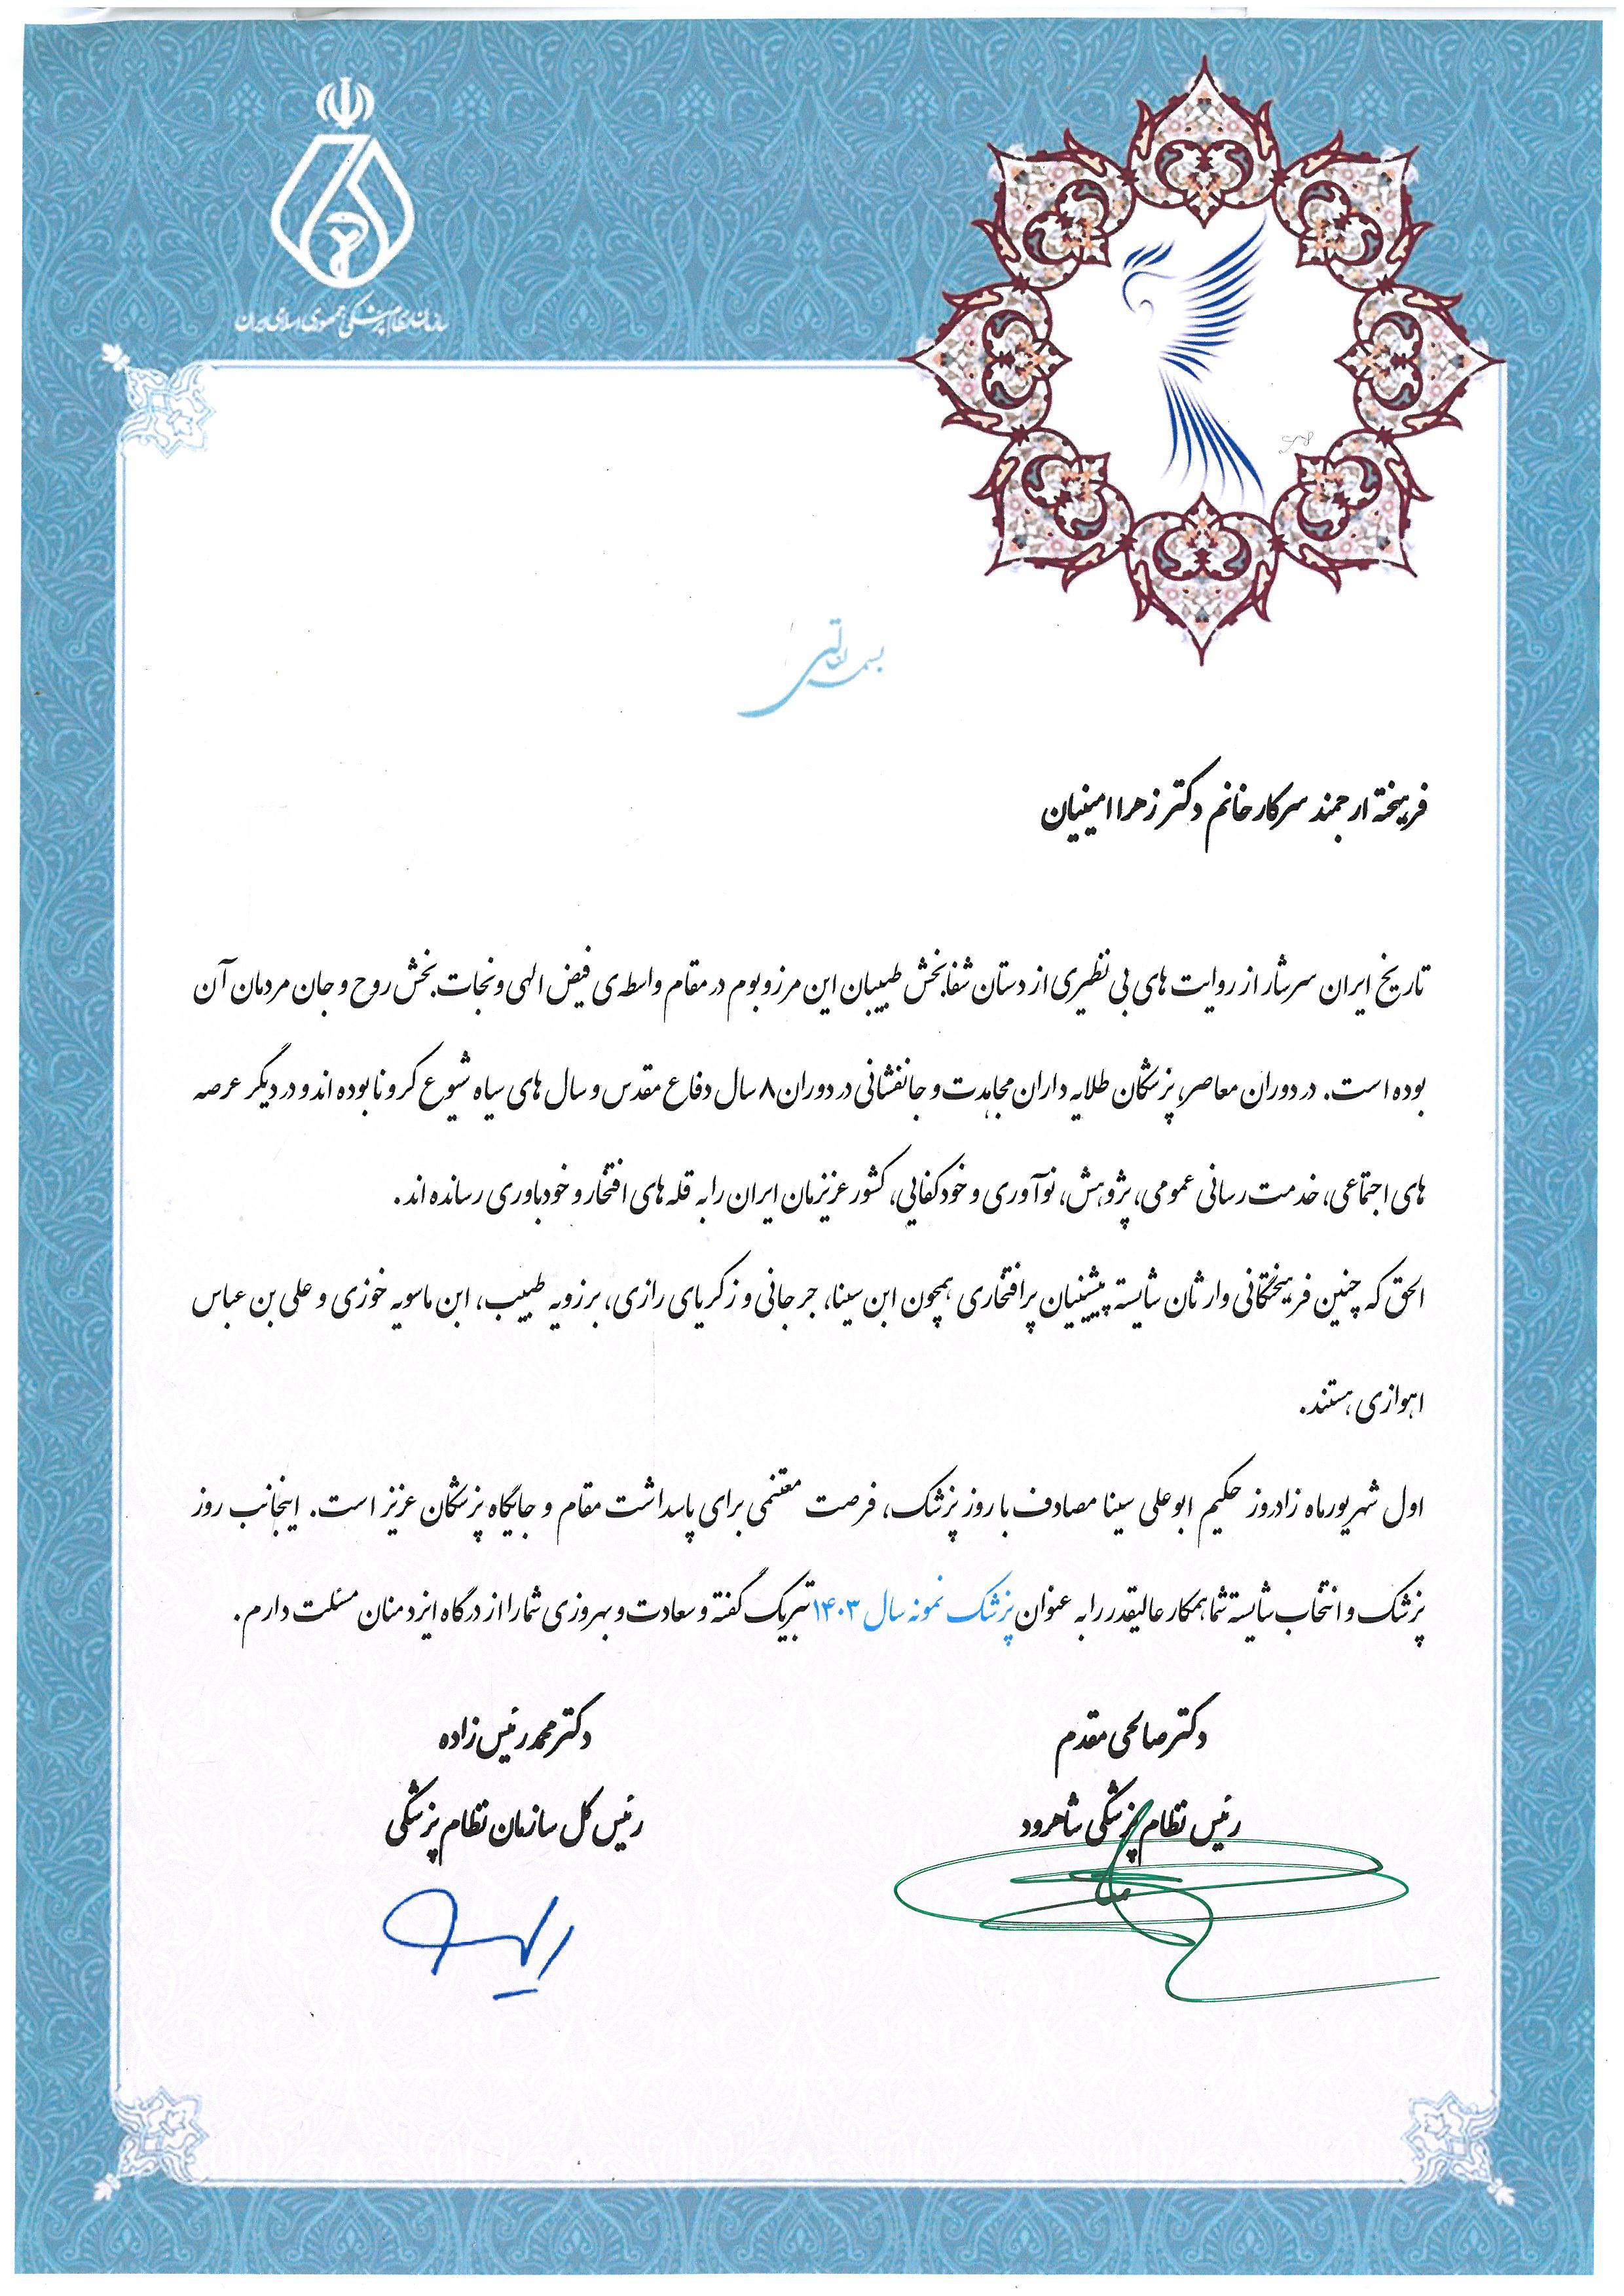 سازمان نظام پزشکی جمهوری اسلامی ایران
بسمه تعالی
فرهیخته ارجمند سرکار خانم دکتر زهرا امینیان
تاریخ ایران سرشار از روایت های بی نظیری از دستان شفابخش طبیبان این مرز و بوم در مقام واسطه ی فیض الهی و نجات بخش روح و جان مردمان آن
بوده است. در دوران معاصر، پزشکان طلایه داران مجاهدت و جانفشانی در دوران ۸ سال دفاع مقدس و سال های سیاه شیوع کرونا بوده اند و در دیگر عرصه
های اجتماعی، خدمت رسانی عمومی، پژوهش، نوآوری و خودکفایی، کشور عزیزمان ایران را به قله های افتخار و خودباوری رسانده اند.
الحق که چنین فرهیختگانی وارثان شایسته پیشینیان پرافتخاری همچون ابن سینا، جرجانی و زکریای رازی، برزویه طبیب، ابن ماسویه خوزی و علی بن عباس
اهوازی هستند.
اول شهریورماه زادروز حکیم ابوعلی سینا مصادف با روز پزشک، فرصت مغتنمی برای پاسداشت مقام و جایگاه پزشکان عزیز است. اینجانب روز
پزشک و انتخاب شایسته شما همکار عالیقدر را به عنوان پزشک نمونه سال ۱۴۰۳ تبریک گفته و سعادت و بهروزی شما را از درگاه ایزد منان مسئلت دارم.
دکتر صالحی مقدم
رئیس نظام پزشکی شاهرود
دکتر محمد رئیس زاده
رئیس کل سازمان نظام پزشکی